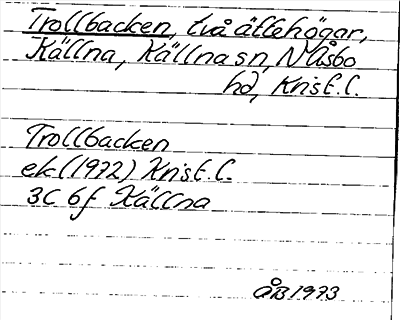 Trollbacken, två ättehögar,
Källna, Källna sn, N Åsbo
hd, Krist. l.
Trollbacken
ek (1972) Krist. l.
3C 6f Källna
ÅB 1973